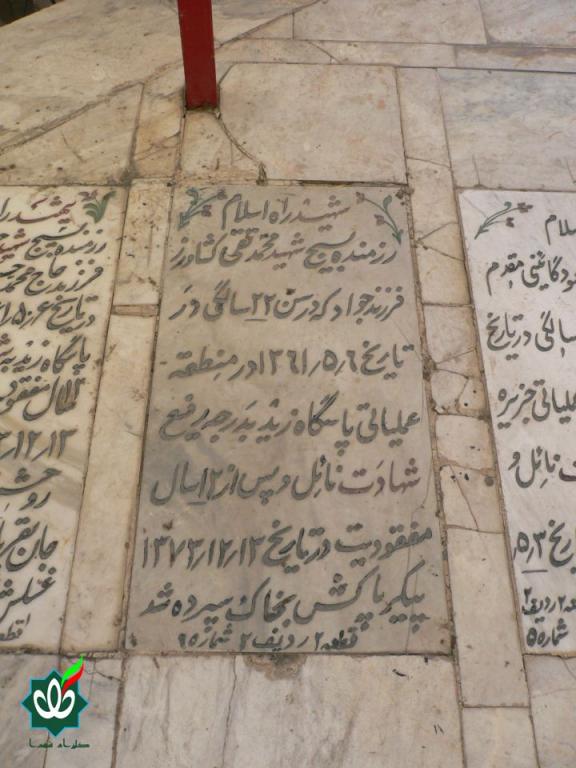 شهید راه اسلام
رزمنده بسیج شهید محمد تقی کشاورز
فرزند جواد که در سن ۲۲ سالگی در
تاریخ ۱۳۶۱٫۵٫۶ در منطقه
عملیاتی پاسگاه زید بدرجه رفیع
شهادت نائل و پس از ۱۲ سال
مفقودیت در تاریخ ۱۳۷۳٫۱۲٫۱۳
پیکر پاکش بخاک سپرده شد
قطعه ۲ ردیف ۲ شماره ۹
رزمنده بسیج
فرزند حاج محمد
در تاریخ
پاسگاه زید
سال مفقودیت
اسلام
مقدم
سالگی در تاریخ
عملیاتی جزیره
نائل و
۵٫۳
ردیف ۲
شماره ۵
گلزار شهدا